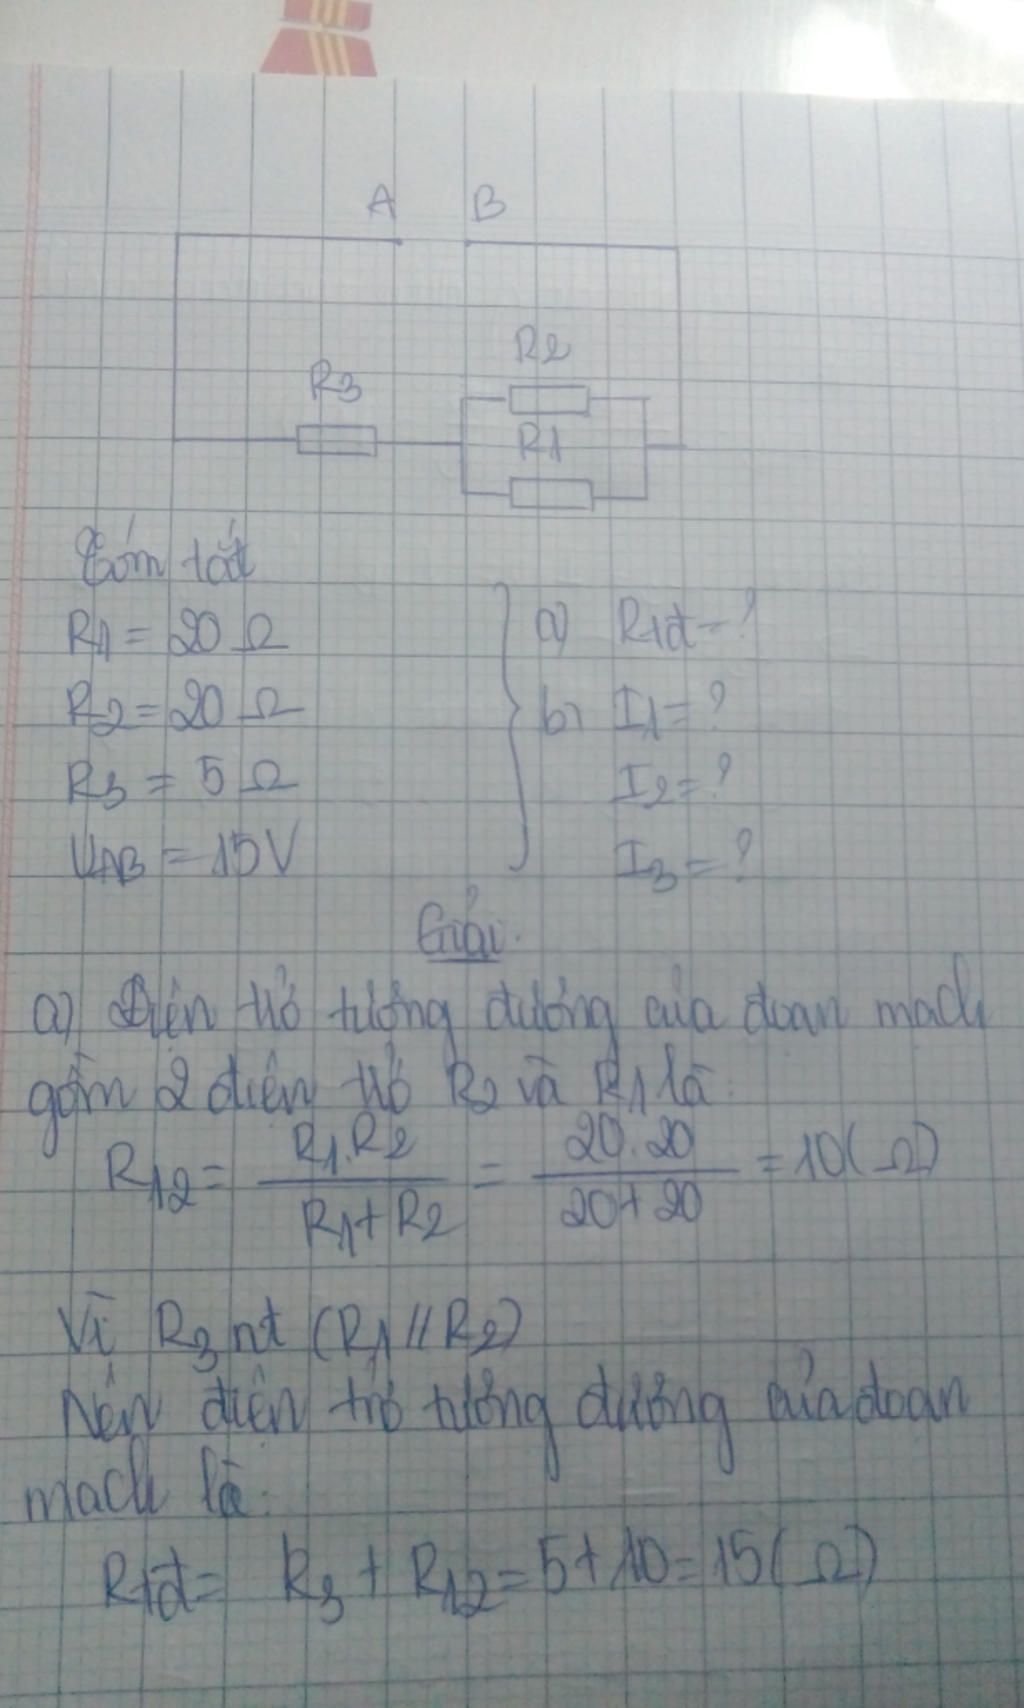 A B
R2
R3
R1
Tóm tắt
R1 = 20 Ω
R2 = 20 Ω
R3 = 5 Ω
UAB = 15V
a) Rtđ = ?
b) I1 = ?
I2 = ?
I3 = ?
Giải
a) Điện trở tương đương của đoạn mạch
gồm 2 điện trở R2 và R1 là:
R12 = R1.R2 / R1+R2 = 20.20 / 20+20 = 10(Ω)
Vì R3 nt (R1 // R2)
Nên điện trở tương đương của đoạn
mạch là:
Rtđ = R3 + R12 = 5 + 10 = 15(Ω)